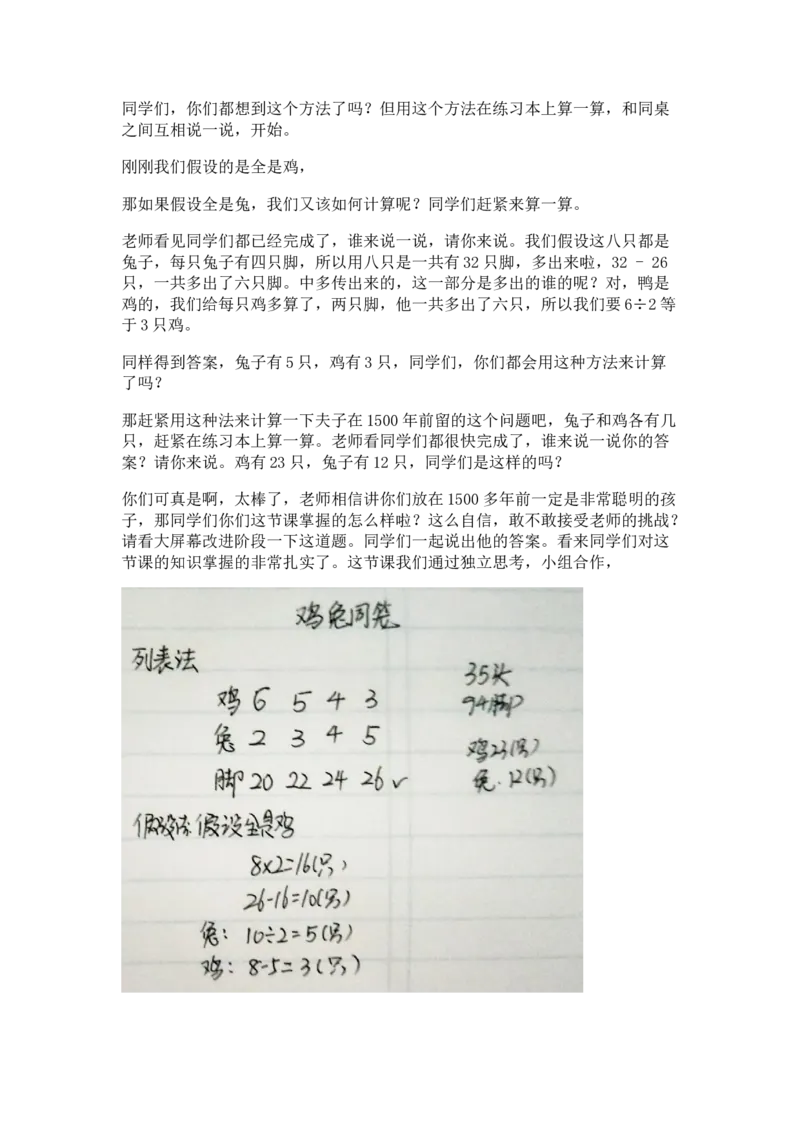 同学们，你们都想到这个方法了吗？但用这个方法在练习本上算一算，和同桌
之间互相说一说，开始。
刚刚我们假设的是全是鸡，
那如果假设全是兔，我们又该如何计算呢？同学们赶紧来算一算。
老师看见同学们都已经完成了，谁来说一说，请你来说。我们假设这八只都是
兔子，每只兔子有四只脚，所以用八只是一共有 32 只脚，多出来啦，32 - 26
只，一共多出了六只脚。中多传出来的，这一部分是多出的谁的呢？对，鸭是
鸡的，我们给每只鸡多算了，两只脚，他一共多出了六只，所以我们要 6÷2 等
于 3 只鸡。
同样得到答案，兔子有 5 只，鸡有 3 只，同学们，你们都会用这种方法来计算
了吗？
那赶紧用这种法来计算一下夫子在 1500 年前留的这个问题吧，兔子和鸡各有几
只，赶紧在练习本上算一算。老师看同学们都很快完成了，谁来说一说你的答
案？请你来说。鸡有 23 只，兔子有 12 只，同学们是这样的吗？
你们可真是啊，太棒了，老师相信讲你们放在 1500 多年前一定是非常聪明的孩
子，那同学们你们这节课掌握的怎么样啦？这么自信，敢不敢接受老师的挑战？
请看大屏幕改进阶段一下这道题。同学们一起说出他的答案。看来同学们对这
节课的知识掌握的非常扎实了。这节课我们通过独立思考，小组合作，
鸡兔同笼
列表法
鸡 6 5 4 3
兔 2 3 4 5
脚 20 22 24 26 ✓
35头
94脚
鸡23(只)
兔.12(只)
假设法:假设全是鸡
8×2=16(只)
26-16=10(只)
兔：10÷2=5(只)
鸡：8-5=3(只)